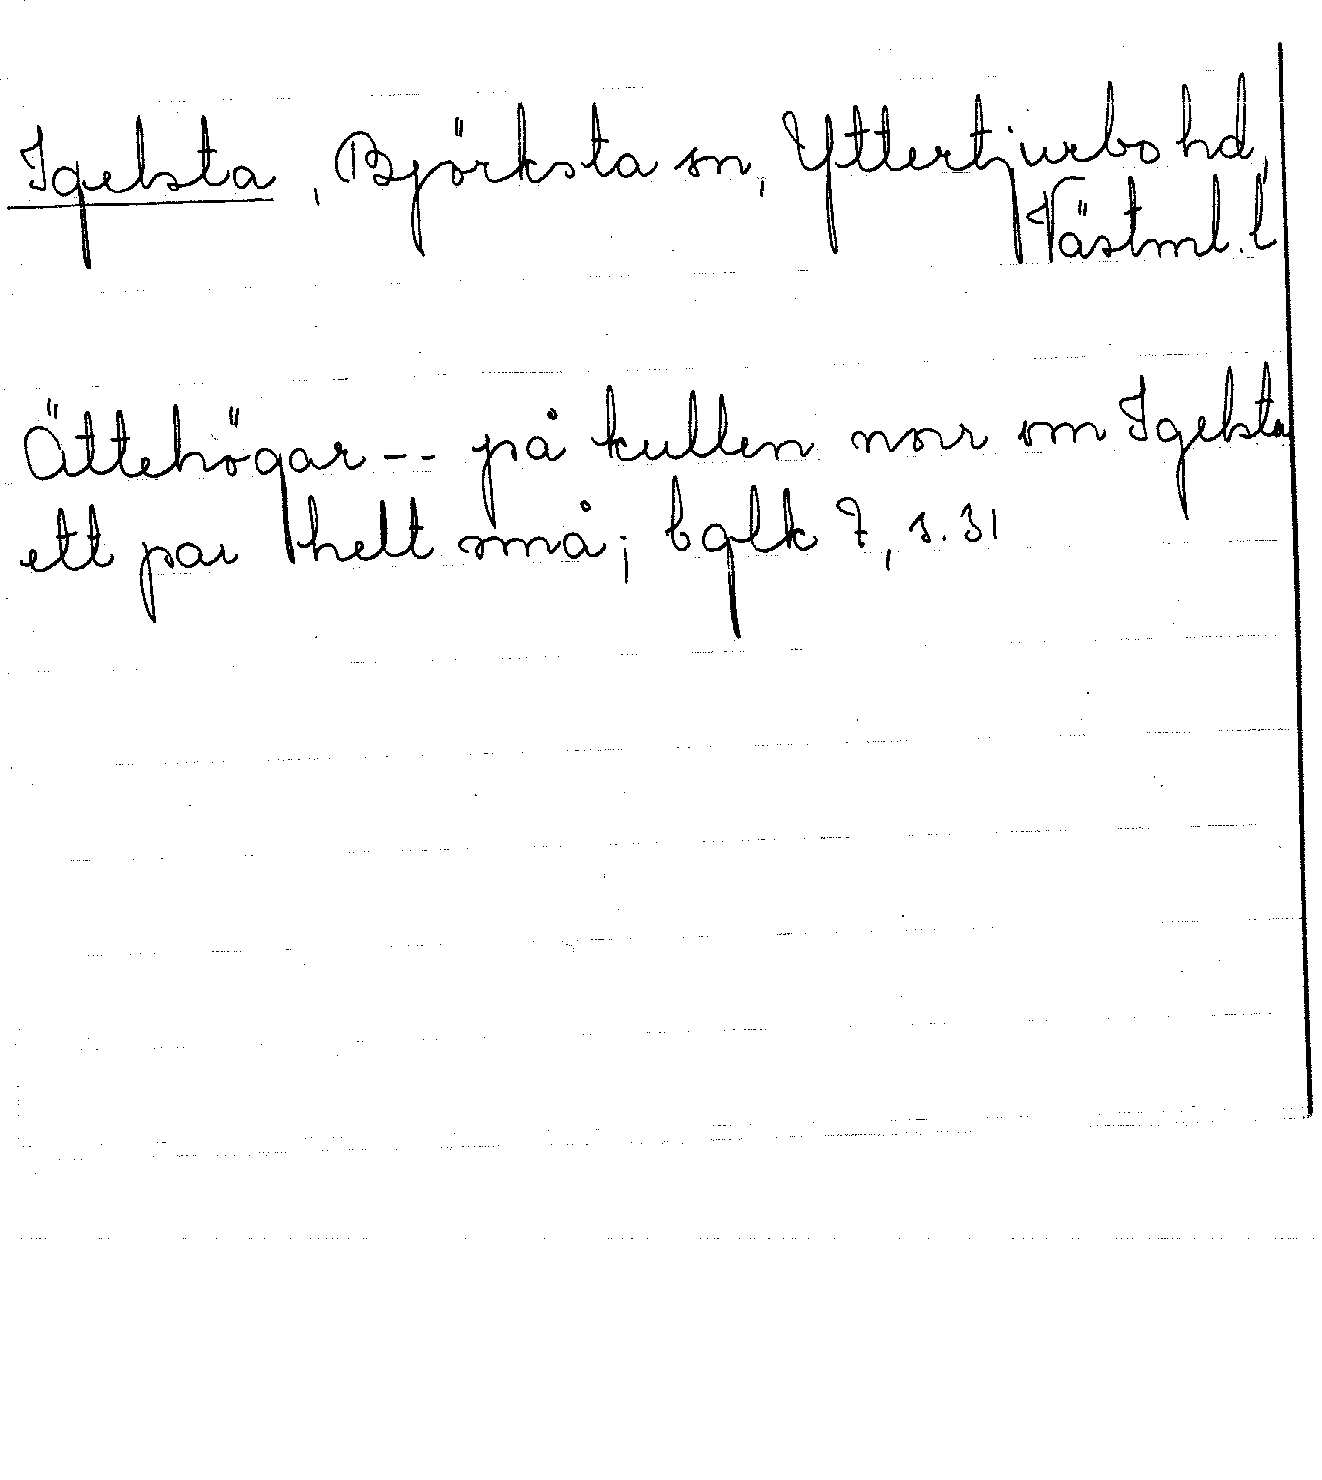 Igelsta, Björksta sn, Yttertjurbo hd,
Västml. l
Ättehögar -- på kullen norr om Igelsta
ett par helt små; bglk 7, s. 31